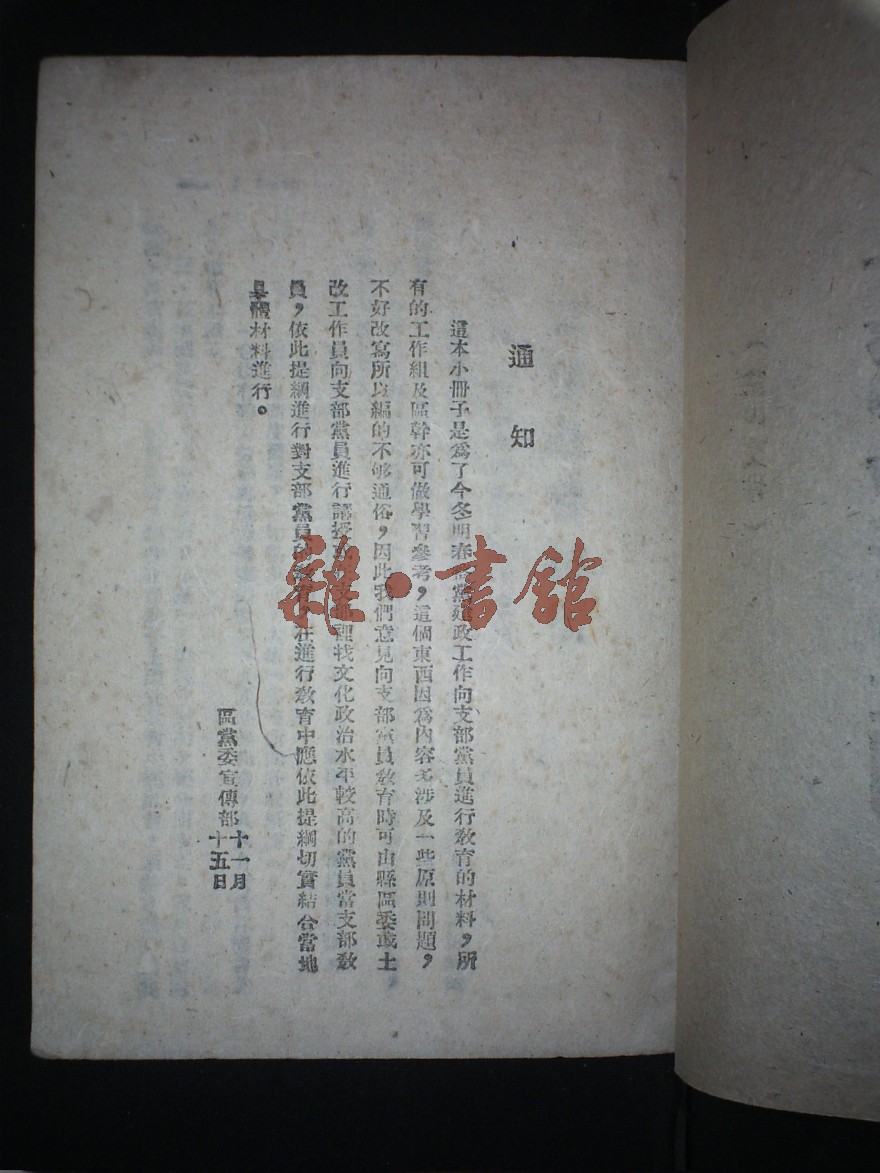 通知
這本小冊子是爲了今冬明春黨建政工作向支部黨員進行教育的材料，所
有的工作組及區幹亦可做學習參考，這個東西因爲內容多涉及一些原則問題，
不好改寫所以編的不够通俗，因此我們意見向支部黨員教育時可由縣區委或土
改工作員向支部黨員進行講授支部裡找文化政治水平較高的黨員當支部教
員，依此提綱進行對支部黨員在進行教育中應依此提綱切實結合當地
具體材料進行。
區黨委宣傳部十一月
十五日
雜·書館